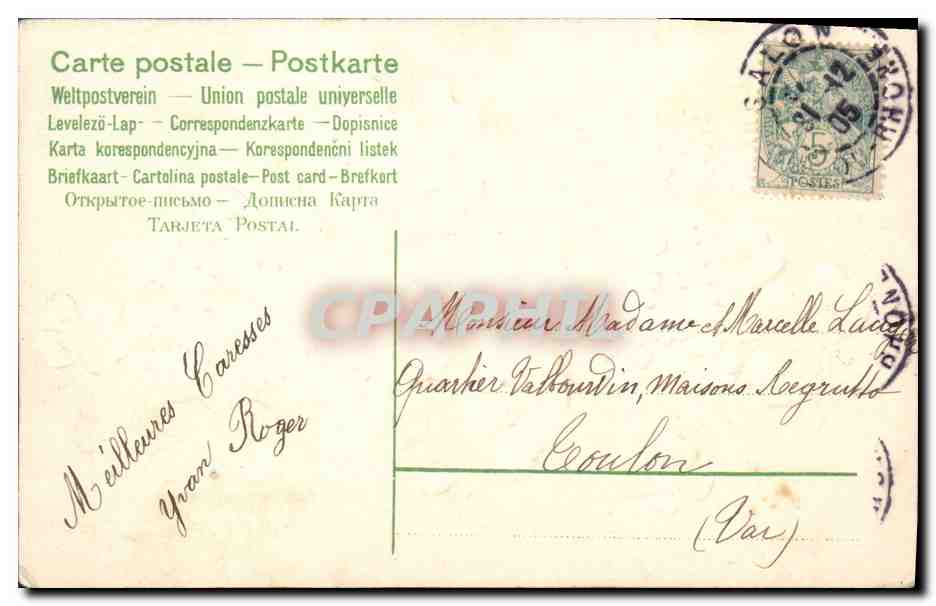 Carte postale — Postkarte
Weltpostverein — Union postale universelle
Levelező-Lap- — Correspondenzkarte — Dopisnice
Karta korespondencyjna — Korespondenční listek
Briefkaart - Cartolina postale — Post card - Brefkort
Открытое-письмо — Дописна Карта
TARJETA POSTAL
SALON
RHONE
31 -12
05
5
POSTES
CPARHIL
Monsieur Madame et Marcelle
Quartier Valbourdin, Maisons Regrutto
Toulon
(Var)
Meilleures Caresses
Yvan Roger